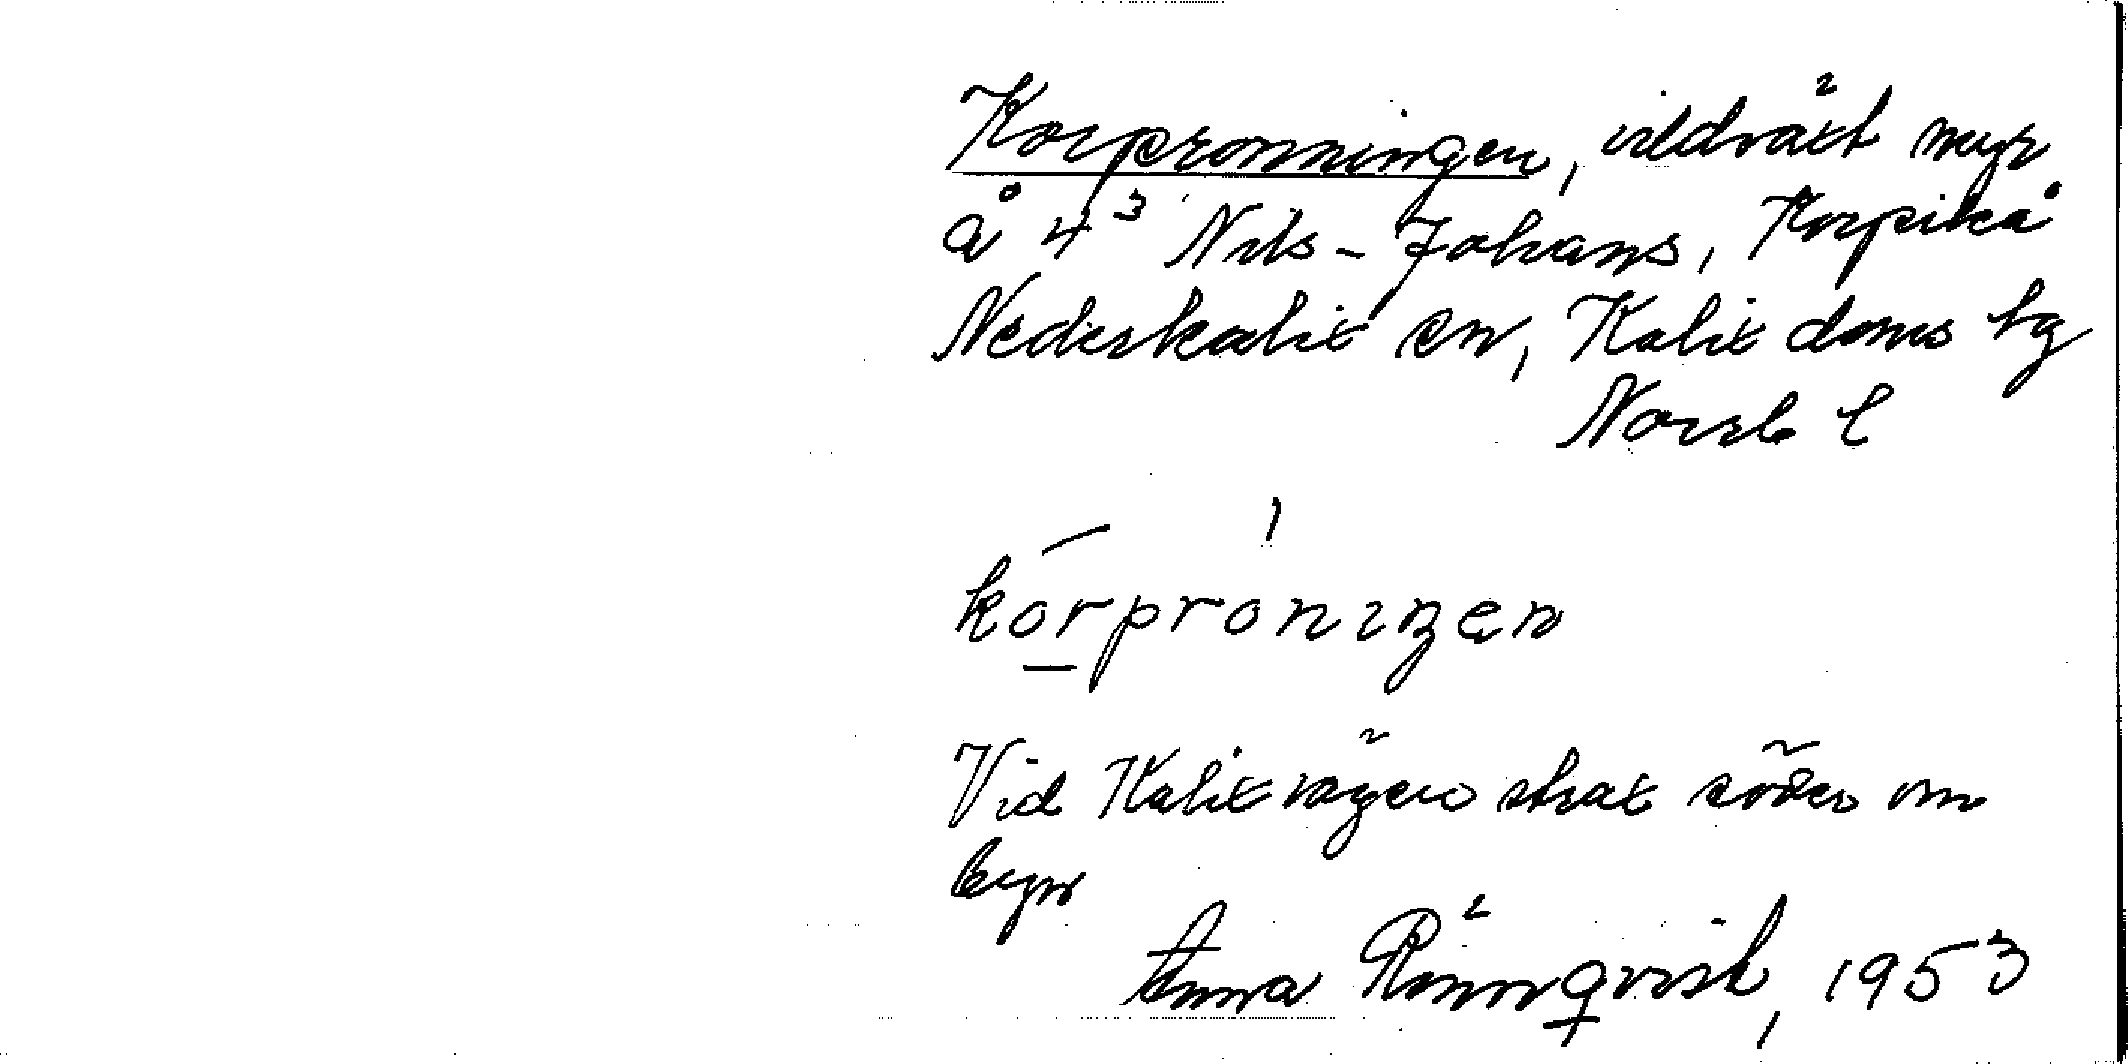 Korpronningen, vildväxt myr
å 4³ Nils-Johans, Korpikå
Nederkalix sn, Kalix doms tg
Norrb l
kórpróniŋen
Vid Kalixvägen strax söder om
byn
Anna Rönnqvist, 1953